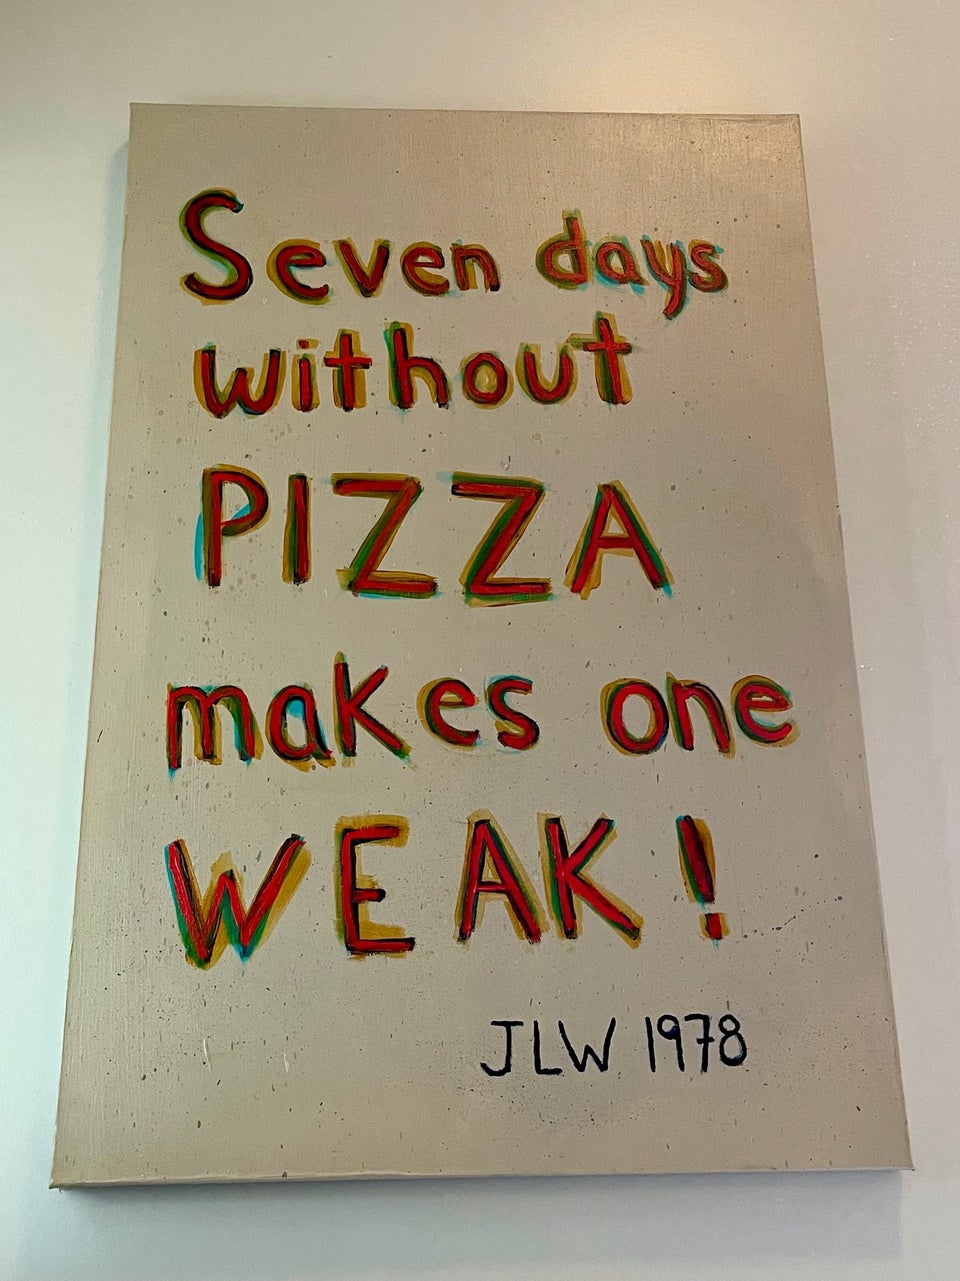 Seven days
without
PIZZA
makes one
WEAK!
JLW 1978